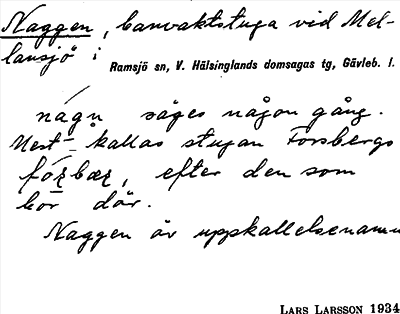 Naggen, banvaktstuga vid Mel-
lansjö i Ramsjö sn, V. Hälsinglands domsagas tg, Gävleb. l.
nágn säges någon gång.
Mest kallas stugan Forsbergs
efter den som
bor där.
Naggen är uppkallelsenamn
LARS LARSSON 1934